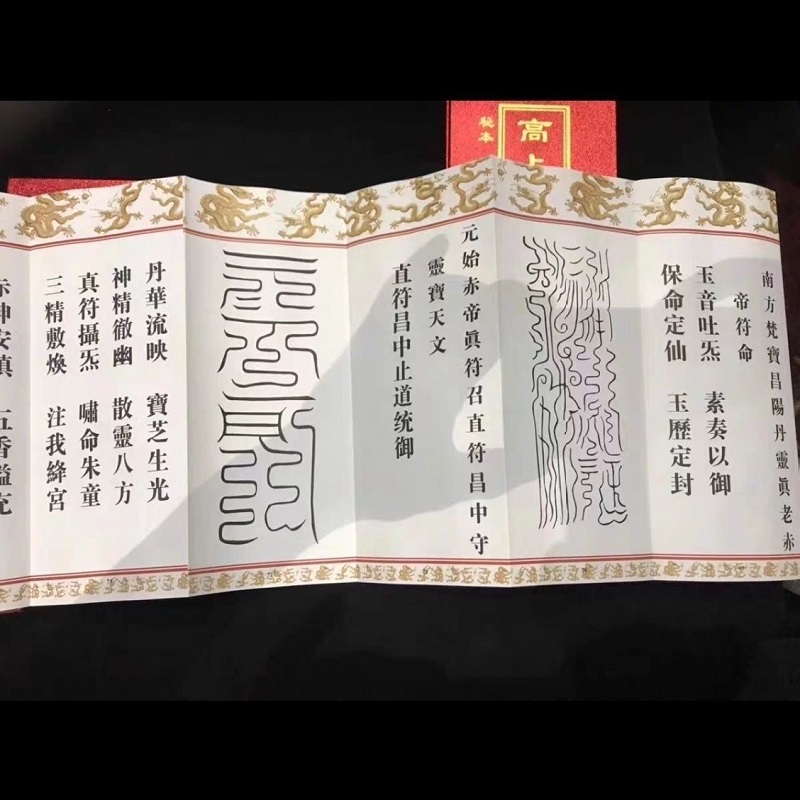 秘本
高上
南方梵寶昌陽丹靈眞老赤
帝符命
玉音吐炁 素奏以御
保命定仙 玉歷定封
元始赤帝眞符召直符昌中守
靈寶天文
直符昌中止道統御
丹華流映 寶芝生光
神精徹幽 散靈八方
真符攝炁 嘯命朱童
三精敷煥 注我絳宮
赤神安鎮 五香溢充